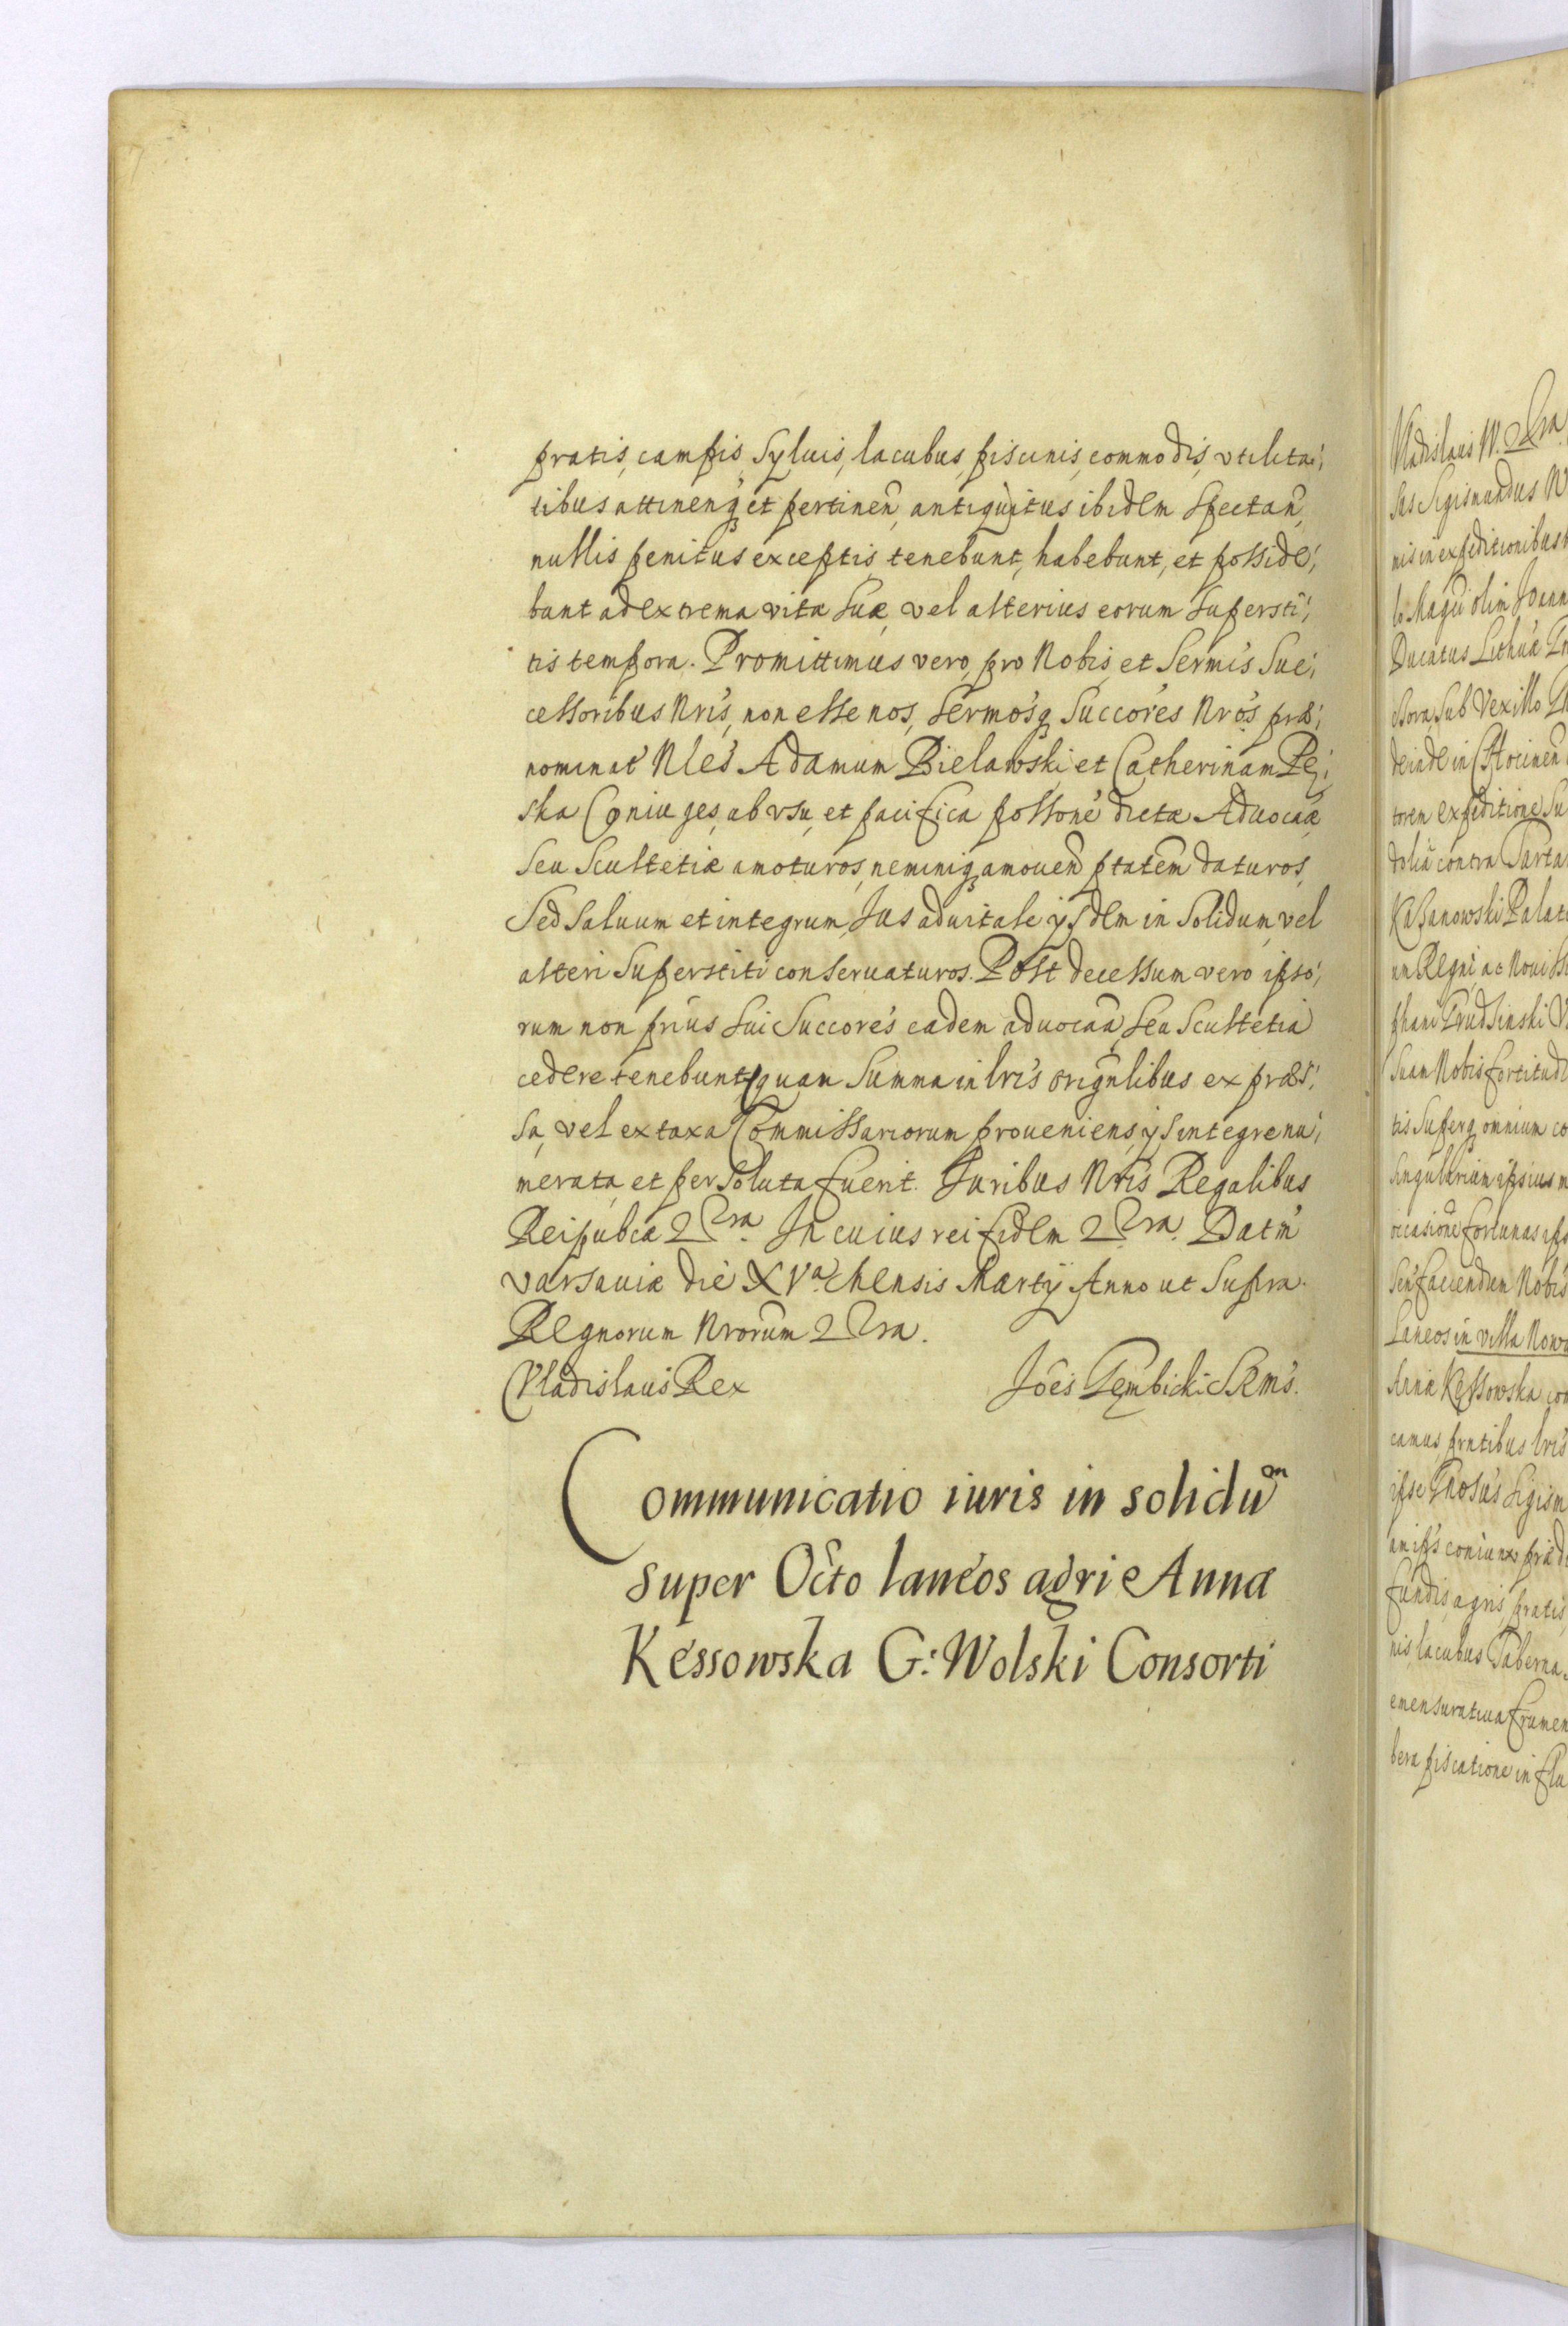 pratis, campis, syluis, lacubus, piscinis, commodis, vtilita-
tibus attinenq et pertinen, antiquitus ibidem spectan,
nullis penitus exceptis tenebunt, habebunt, et posside-
bunt ad extrema vitæ suæ, vel alterius eorum supersti-
tis tempora. Promittimus vero, pro Nobis, et Sermis Suc-
cessoribus Nris, non esse nos, Sermosq Succores Nros præ-
nominat Nles Adamum Bielawski, et Catherinam Pę-
ska Coniuges, ab vsu, et pacifica possone dictæ Aduocaæ
seu Scultetiæ amoturos, neminiq amouen ptatem daturos,
Sed Saluum et integrum, Jus aduitale ysdem in Solidum, vel
alteri Superstiti conseruaturos. Post decessum vero ipso-
rum non prius sui Succores eadem aduocaa, seu Scultetia
cedere tenebunt, quam Summa in lris orignlibus expræs-
sa, vel ex taxa Commissariorum proueniens, ys integre nu-
merata, et persoluta fuerit. Juribus Nris Regalibus
Reipubcæ 2 Tra. In cuius rei fidem 2 Tra. Datm
varsauiæ die XVa Mensis Marty Anno ut Supra.
Regnorum Nrorum 2 Tra.
Vladislaus Rex Joes Gembicki SRms.
Communicatio iuris in solidum
super Octo laneos agri Annæ
Kessowska G: Wolski Consorti
Vladislaus IV. 2 Tra
sus Sigismundus W
nis in expeditionibus
lo Magci olim Joann
Ducatus Lithuæ
sub Vexillo
deinde in Chocinen
toren expeditione Su
doliæ contra Tarta
Kasanowski Palat
Regni, ac Noui
phani Grudsinski
suam Nobis fortitud
tis superq omnium co
singularium ipsius
occasione fortunas ips
faciendam Nobis
Laneos in villa Nowa
Annæ Kęssowska con
camus prntibus lris
ipse Gnosus Sigism
ipss coniunx præd
fundis, agris, pratis,
nis, lacubus Taberna
emensuratiua frumen
bera piscatione in flu